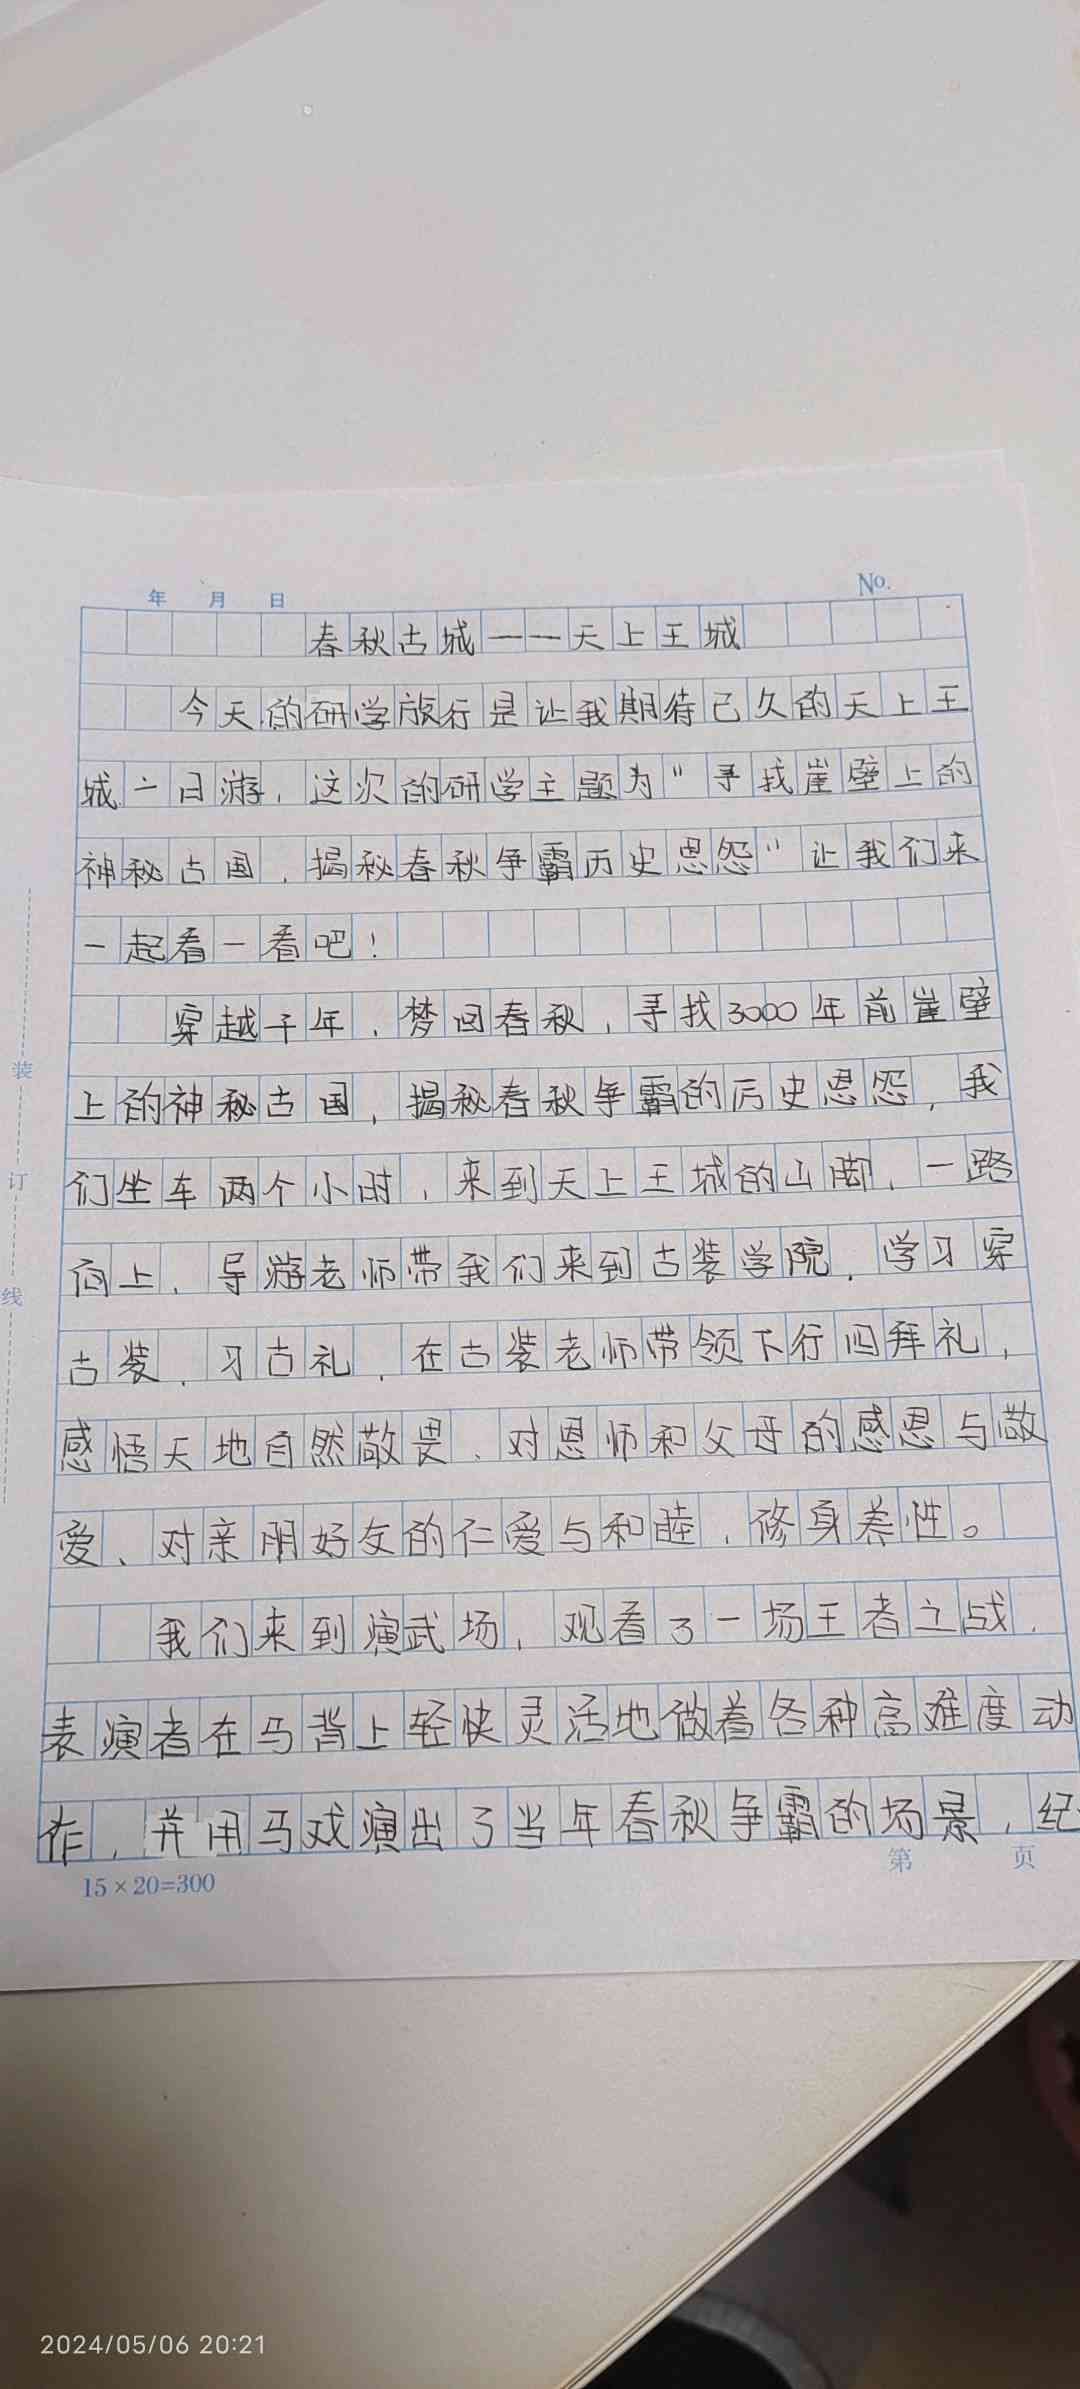 年 月 日 No.
春秋古城——天上王城
今天的研学放行是让我期待已久的天上王
城一日游，这次的研学主题为"寻找崖壁上的
神秘古国，揭秘春秋争霸历史恩怨"让我们来
一起看一看吧！
穿越千年，梦回春秋，寻找3000年前崖壁
上的神秘古国，揭秘春秋争霸的历史恩怨，我
们坐车两个小时，来到天上王城的山脚，一路
向上，导游老师带我们来到古装学院，学习穿
古装，习古礼，在古装老师带领下行四拜礼，
感悟天地自然敬畏、对恩师和父母的感恩与敬
爱、对亲朋好友的仁爱与和睦，修身养性。
我们来到演武场，观看了一场王者之战，
表演者在马背上轻快灵活地做着各种高难度动
作，并用马戏演出了当年春秋争霸的场景，纪
15×20=300 第 页
装
订
线
2024/05/06 20:21